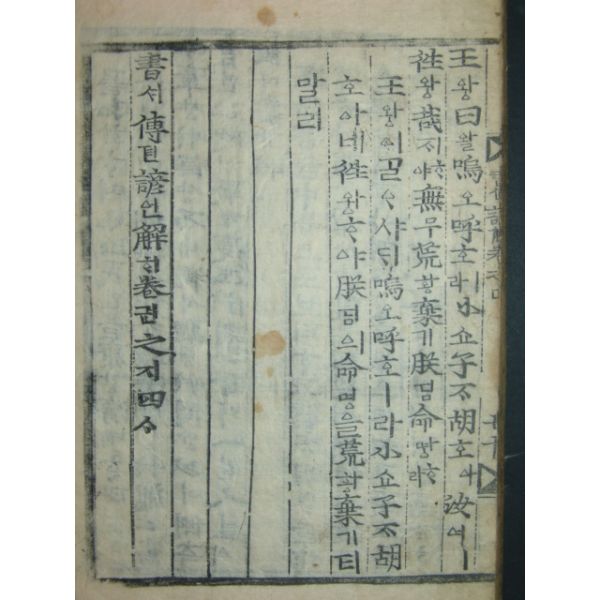 王왕曰왈嗚오呼호ㅣ라小쇼子ᄌᆞ胡호아汝여ㅣ
徃왕哉ᄌᆡ야ᄒᆞ無무荒황棄기朕딤命명ᄒᆞ라
王왕이ᄀᆞᆯᄋᆞ샤ᄃᆡ嗚오呼호ㅣ라小쇼子ᄌᆞ胡
호아네徃왕ᄒᆞ야朕딤의命명을荒황棄기티
말라
書셔傳뎐諺언解ᄒᆡ卷권之지四ᄉᆞ